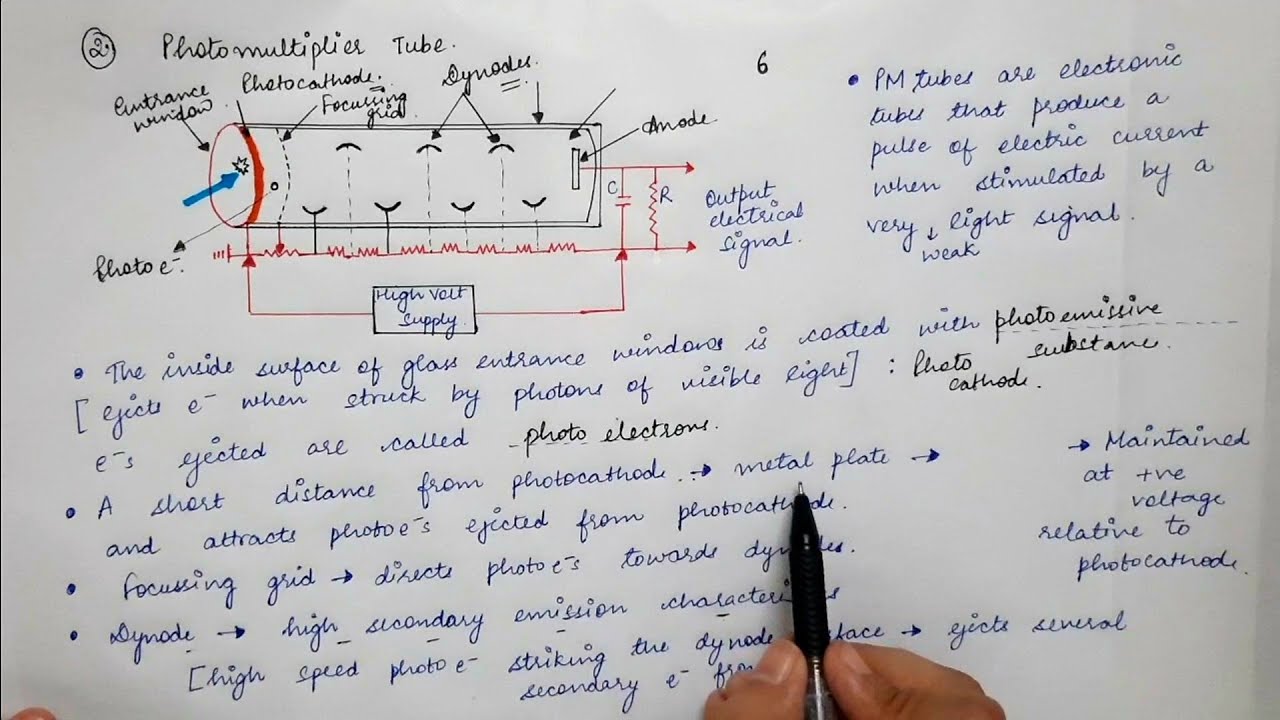 2. Photomultiplier Tube.
6
Entrance window.
Photocathode.
Focussing grid.
Dynodes.
Anode.
C
R
Output electrical signal.
Photo e-.
High Volt
Supply.
• PM tubes are electronic
tubes that produce a
pulse of electric current
when stimulated by a
very light signal.
weak
• The inside surface of glass entrance windows is coated with photoemissive
substance.
[ejects e- when struck by photons of visible light] : Photo
cathode.
e-s ejected are called photo electrons.
• A short distance from photocathode → metal plate → → Maintained
at +ve
voltage
and attracts photo e-s ejected from photocathode.
relative to
photocathode.
• Focussing grid → directs photo e-s towards dynodes.
• Dynode → high secondary emission
[high speed photo e- striking the dynode surface → ejects several
secondary e-